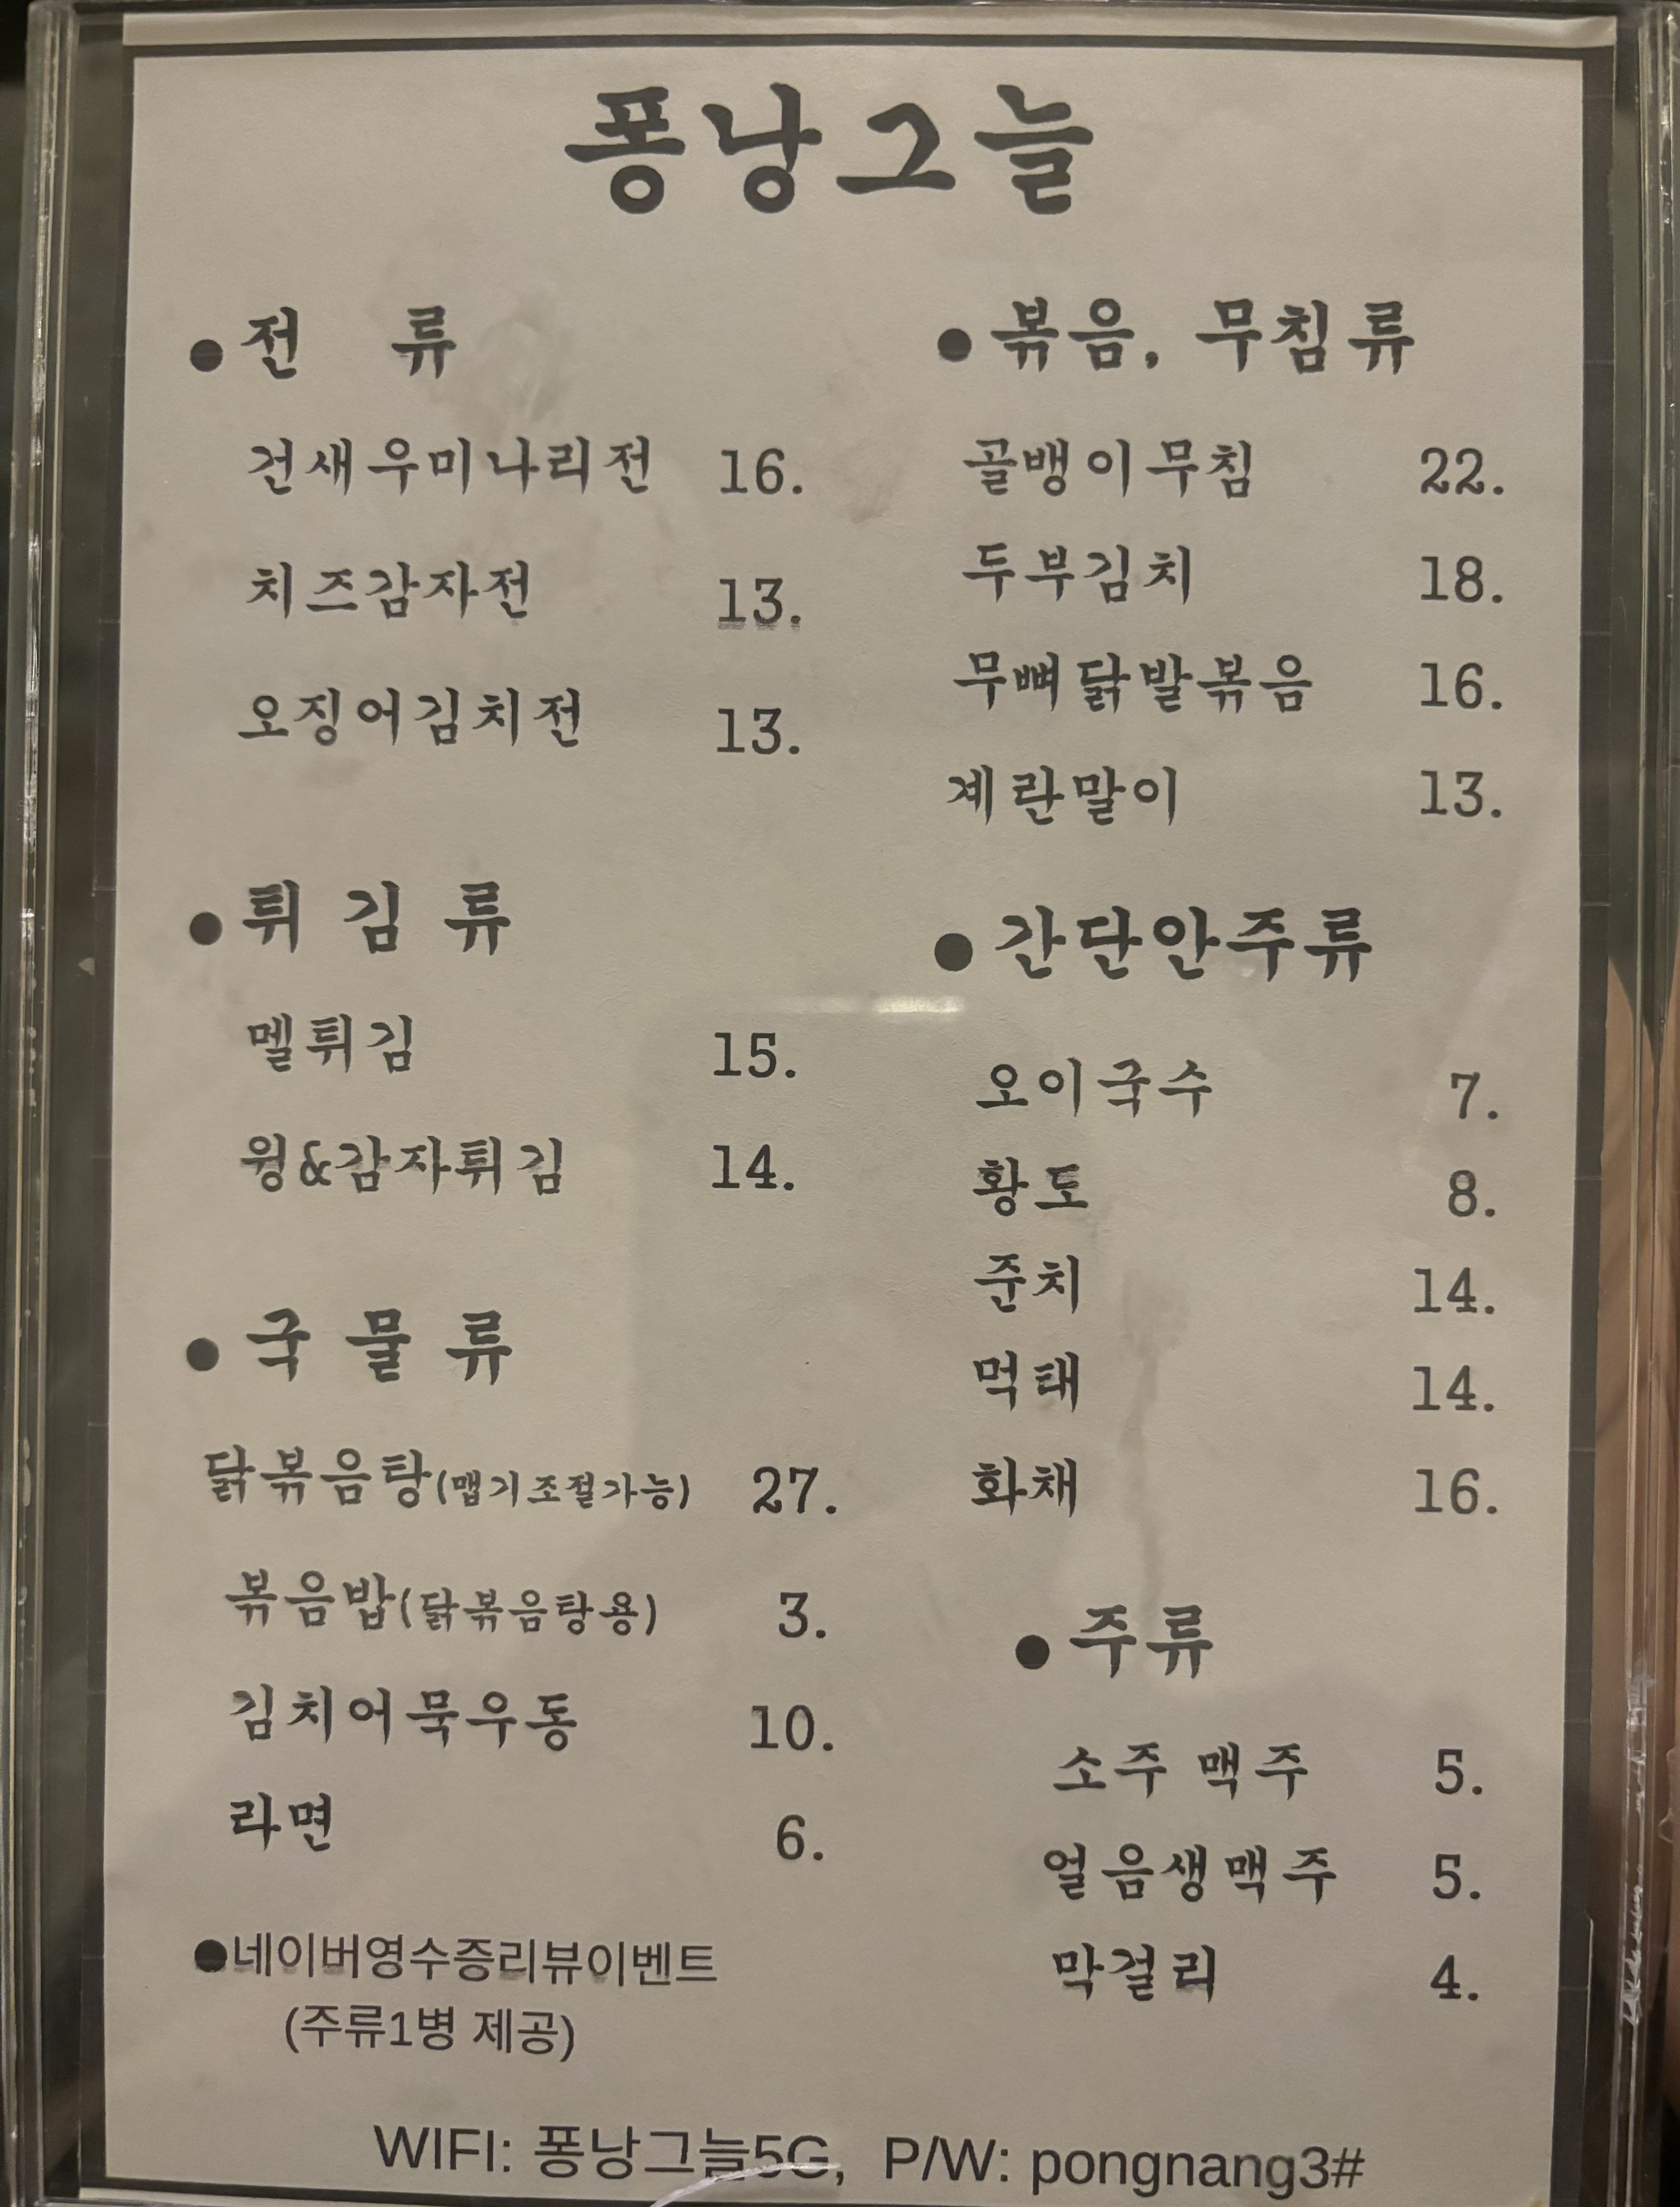 퐁낭그늘
●전 류
건새우미나리전 16.
치즈감자전 13.
오징어김치전 13.
●튀김류
멜튀김 15.
윙&감자튀김 14.
●국물류
닭볶음탕(맵기조절가능) 27.
볶음밥(닭볶음탕용) 3.
김치어묵우동 10.
라면 6.
●네이버영수증리뷰이벤트
(주류1병 제공)
●볶음, 무침류
골뱅이무침 22.
두부김치 18.
무뼈닭발볶음 16.
계란말이 13.
●간단안주류
오이국수 7.
황토 8.
준치 14.
먹태 14.
화채 16.
●주류
소주 맥주 5.
얼음생맥주 5.
막걸리 4.
WIFI: 퐁낭그늘5G, P/W: pongnang3#